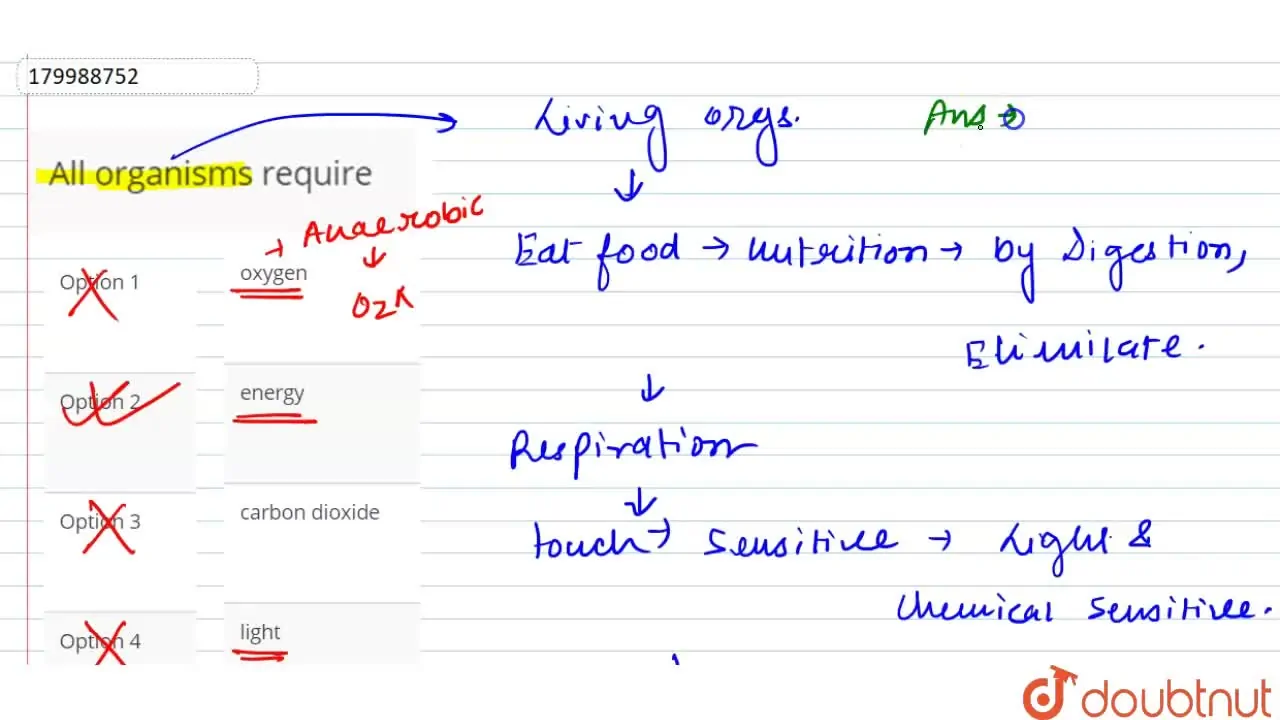 179988752
Living orgs. Ans →
All organisms require
→ Anaerobic
Eat food → Nutrition → by Digestion,
Option 1 oxygen
O2 X
Elimilate.
Option 2 energy
Respiration
Option 3 carbon dioxide
touch → Sensitive → Light &
Chemical Sensitive.
Option 4 light
doubtnut